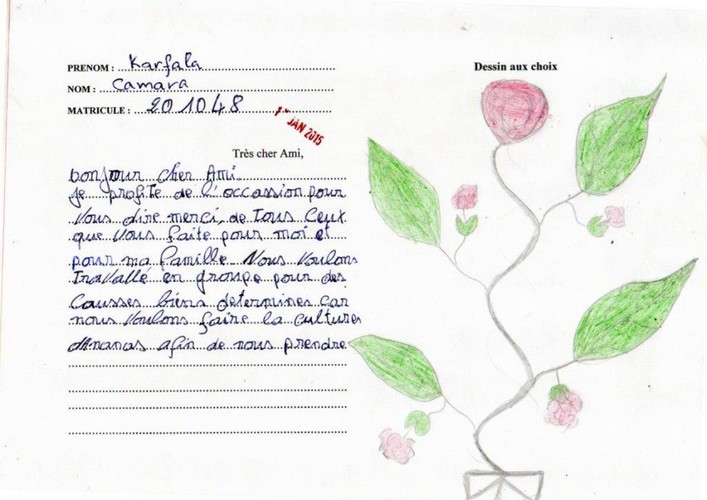 PRENOM : Karfala
NOM : Camara
MATRICULE : 201048
JAN 2015
Dessin aux choix
Très cher Ami,
bonjour cher Ami
je profite de l'occassion pour
Vous dire merci, de Tous Ceux
que Vous faite pour moi et
pour ma famille Nous Voulons
Travallé en groupe pour des
Causses biens determines car
nous Voulons faire la cultures
Ananas afin de nous prendre